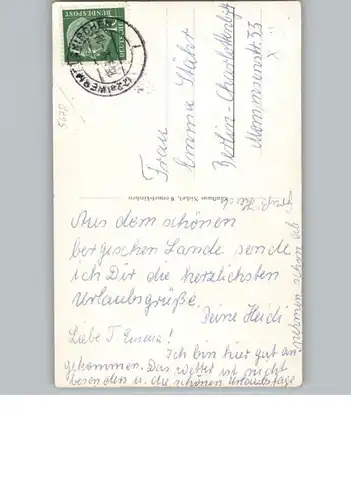 DEUTSCHE
BUNDESPOST
(22a) WERMELSKIRCHEN
Frau
Emma Stühr
Berlin-Charlottenburg
Mommsenstr. 33
Aus dem schönen
bergischen Lande sende
ich Dir die herzlichsten
Urlaubsgrüße.
Deine Heidi
Liebe T. Emma!
Ich bin hier gut an-
gekommen. Das Wetter ist nicht
besonders u. die schönen Urlaubstage
nehmen schon ab